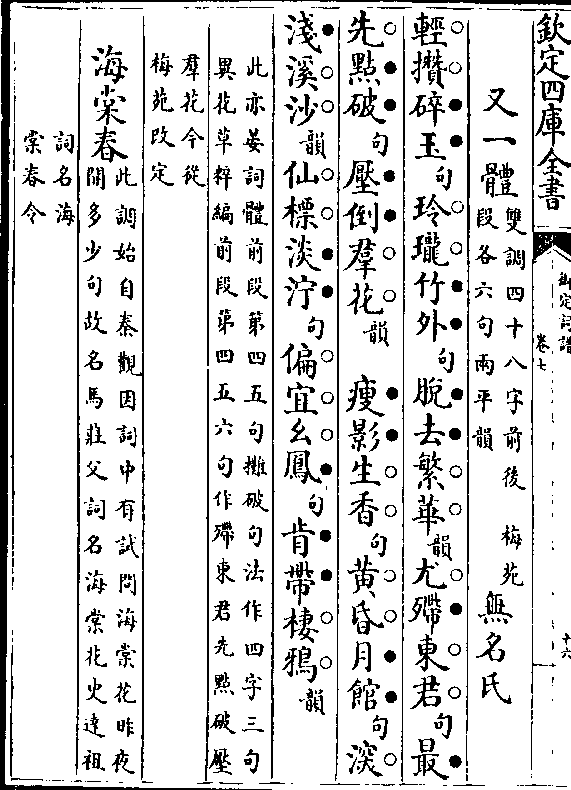 欽定四庫全書
御定詞譜
卷七
十六
又一體
雙調四十八字前後
段各六句兩平韻
梅苑無名氏
輕攢碎玉句玲瓏竹外句脫去繁華韻尤殢東君句最
先點破句壓倒羣花韻 瘦影生香句黃昏月館句深
淺溪沙韻仙標淡泞句偏宜幺鳳句肯帶棲鴉韻
此亦晏詞體前段第四五句攤破句法作四字三句
異花草粹編前段第四五六句作殢東君先點破壓
羣花今從
梅苑改定
海棠春
此調始自秦觀因詞中有試問海棠花昨夜
開多少句故名馬莊父詞名海棠花史達祖
詞名海
棠春令